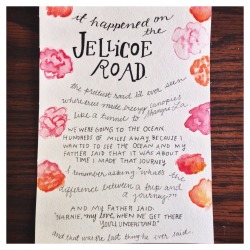 it happened on
the
JELLICOE
ROAD.
the prettiest road I'd ever seen
where trees made breezy canopies
like a tunnel to Shangri-La.
WE WERE GOING TO THE OCEAN,
HUNDREDS OF MILES AWAY, BECAUSE I
WANTED TO SEE THE OCEAN AND MY
FATHER SAID THAT IT WAS ABOUT
TIME I MADE THAT JOURNEY.
I remember asking, "What's the
difference between a trip and
a journey?"
AND MY FATHER SAID:
"NARNIE, my love, WHEN WE GET THERE
YOU'LL UNDERSTAND."
and that was the last thing he ever said.